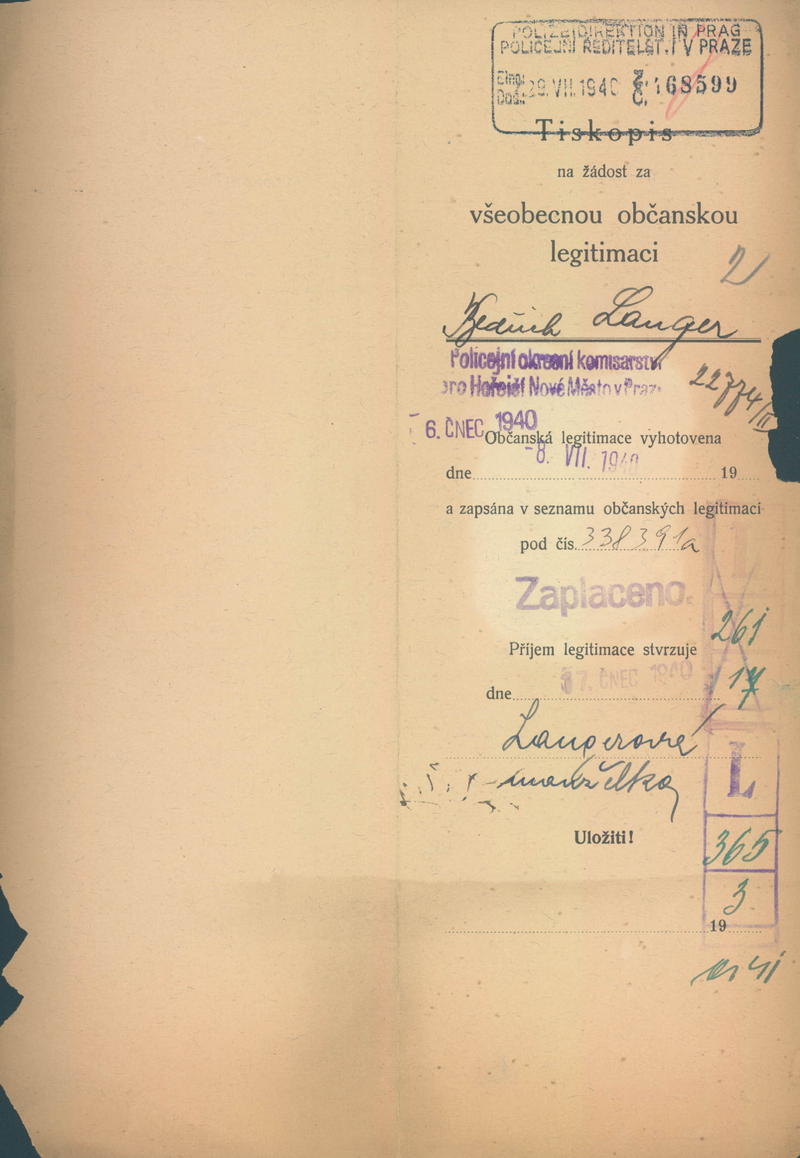 POLIZEIDIREKTION IN PRAG
POLICEJNÍ ŘEDITELST. V PRAZE
Eing.
Došl. 29. VII. 1940 Z. Č. 168599
Tiskopis
na žádost za
všeobecnou občanskou
legitimaci
2
Bedřich Langer
Policejní okresní komisařství
pro Hořejší Nové Město v Praze
22774/II
6. ČNEC 1940
Občanská legitimace vyhotovena
-8. VII. 1940
dne 19
a zapsána v seznamu občanských legitimací
pod čís. 338391a
Zaplaceno.
261
Příjem legitimace stvrzuje
17. ČNEC 1940
dne 17
Langerová
manželka
L
Uložiti!
365
3
19